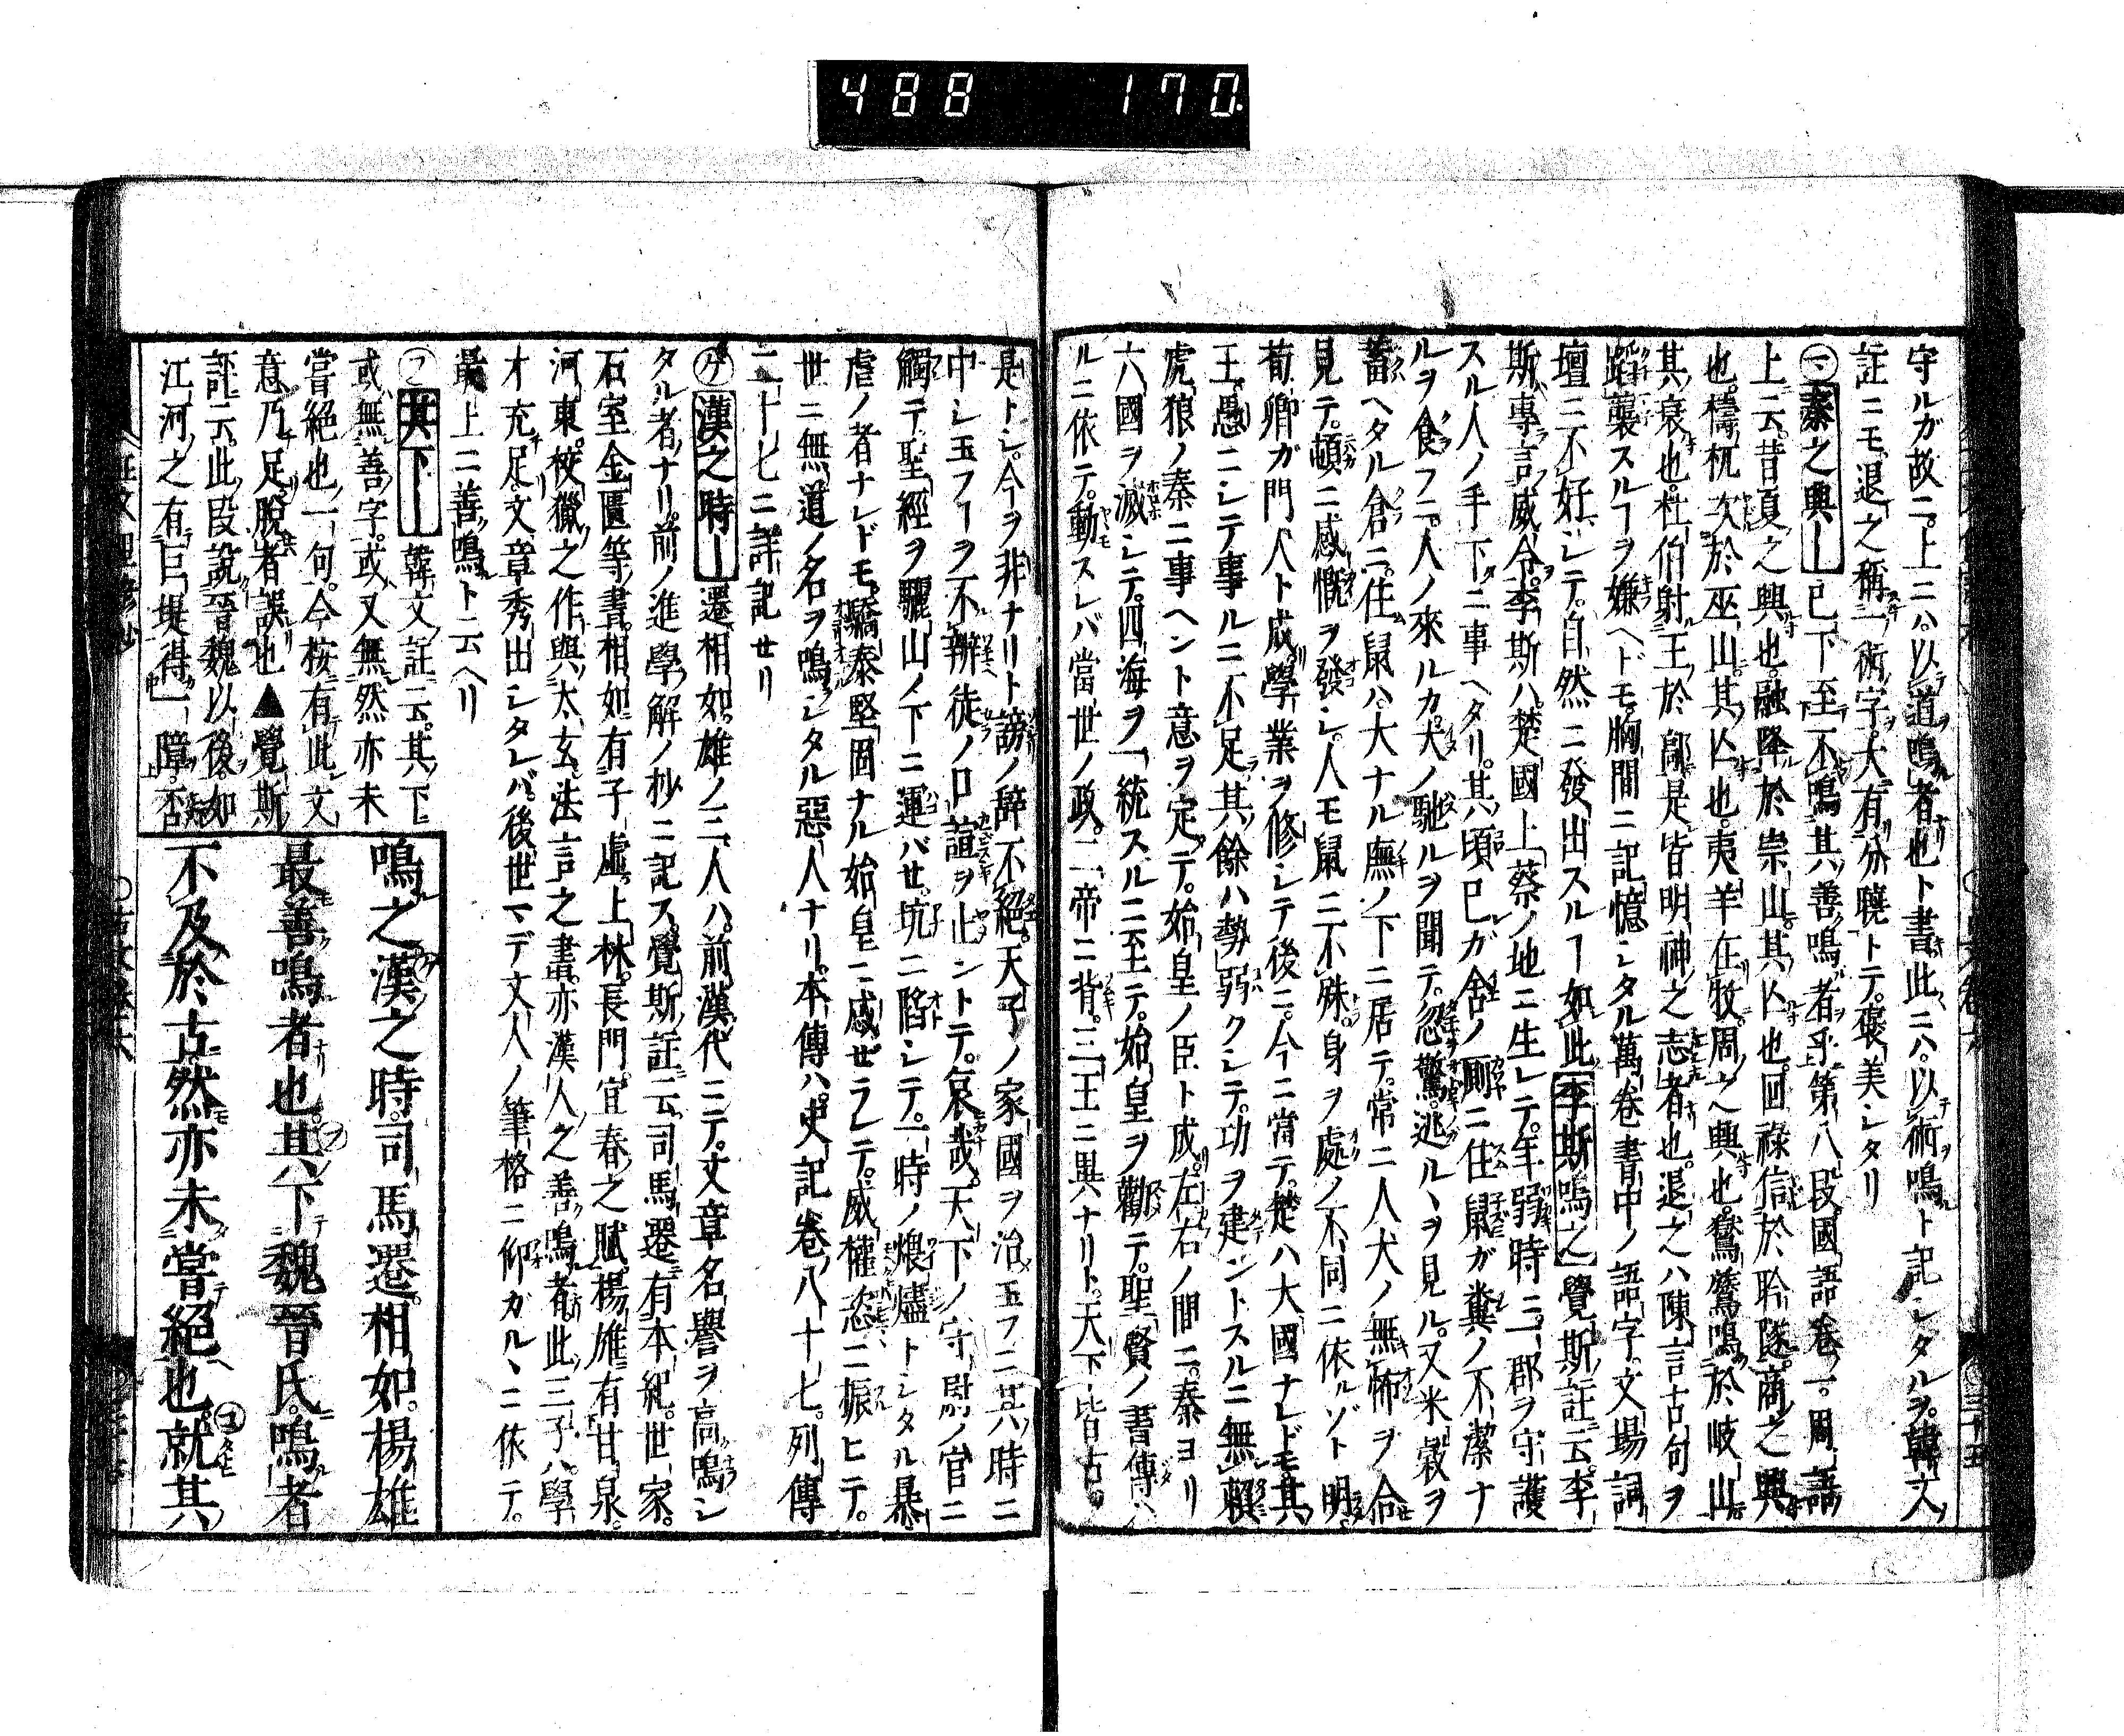 488 170
守ルガ故ニ。上ニハ。以道鳴者也ト書。此ニハ。以術鳴ト記シタルヲ。韓文
註ニモ。退之稱一術字。大有分曉トテ。褒美シタリ
㋮秦之興ー已下至不鳴其善鳴者乎。第八段。國語卷一。周語
上云。昔夏之興也。融降於崇山。其亾也。回祿信於聆隧。商之興
也。檮杌次於巫山。其亾也。夷羊在牧。周之興也。鸑鷟鳴於岐山。
其衰也。杜伯射王於鄗。是皆明神之志者也。退之ハ陳言古句ヲ
蹈襲スルヿヲ嫌ヘドモ。胸間ニ記憶シタル萬卷書中ノ語字。文場詞
壇ニ不好シテ。自然ニ發出スルヿ如此李斯鳴之覺斯註云。李
斯專言威令。李斯ハ。楚國上蔡ノ地ニ生レテ。年弱時ニ一郡ヲ守護
スル人ノ手下ニ事ヘタリ。其頃已ガ舍ノ厠ニ住鼠ガ糞ノ不潔ナ
ルヲ食フニ。人ノ來ルカ。犬ノ馳ルヲ聞テ。忽驚逃ルヽヲ見ル。又米穀ヲ
蓄ヘタル倉ニ。住鼠ハ。大ナル廡ノ下ニ居テ。常ニ人犬ノ無怖ヲ合
見テ。頓ニ感慨ヲ發シ。人モ鼠ニ不殊。身ヲ處ノ不同ニ依ルゾト明メ
荀卿ガ門人ト成。學業ヲ修シテ後ニ。今ニ當テ。楚ハ大國ナレドモ。其
王。愚ニシテ事ルニ不足。其餘ハ勢弱クシテ。功ヲ建ントスルニ無賴
虎狼ノ秦ニ事ヘント意ヲ定テ。始皇ノ臣ト成。左右ノ間ニ。秦ヨリ
六國ヲ滅シテ。四海ヲ一統スルニ至テ。始皇ヲ勸テ。聖賢ノ書傳ハ
ルニ依テ。動スレバ當世ノ政。二帝ニ背。三王ニ異ナリト。天下皆古
是トシ。今ヲ非ナリト謗ノ辭不絕。天子ノ家國ヲ治玉フニ其時ニ
中シ玉フヿヲ不辨徒ノ口諠ヲ止ントテ。哀哉。天下ノ守尉ノ官ニ
觸テ聖經ヲ驪山ノ下ニ運バセ。坑ニ陷シテ。一時ノ煨燼トシタル暴
虐ノ者ナレドモ。驕泰堅固ナル始皇ニ感ゼラレテ。威權恣ニ振ヒテ。
世ニ無道ノ名ヲ鳴シタル惡人ナリ。本傳ハ。史記卷八十七。列傳
二十七ニ詳記セリ
㋘漢之時ー遷相如。雄ノ三人ハ。前漢代ニテ。文章名譽ヲ高鳴シ
タル者ナリ。前ノ進學解ノ抄ニ記ス。覺斯註云。司馬遷有本紀。世家。
石室金匱等書。相如有子虛。上林。長門宜春之賦。楊雄有甘泉。
河東。校獵之作。與太玄法言之書。亦漢人之善鳴者。此三子ハ。學
オ充足。文章秀出シタレバ。後世マデ文人ノ筆格ニ仰ガルヽニ依テ。
最上ニ善鳴ト云ヘリ
㋫其下ー韓文註云。其下
或無善字。或又無然亦未
嘗絕也一句。今按有此文
意乃足。脫者誤也▲覺斯
註云。此段說晉魏以後。如
江河之有巨堤得一障。否
鳴之漢之時。司馬遷。相如。楊雄
最善鳴者也。其下魏晉氏。鳴者
不及於古。然亦未嘗絕也。就其